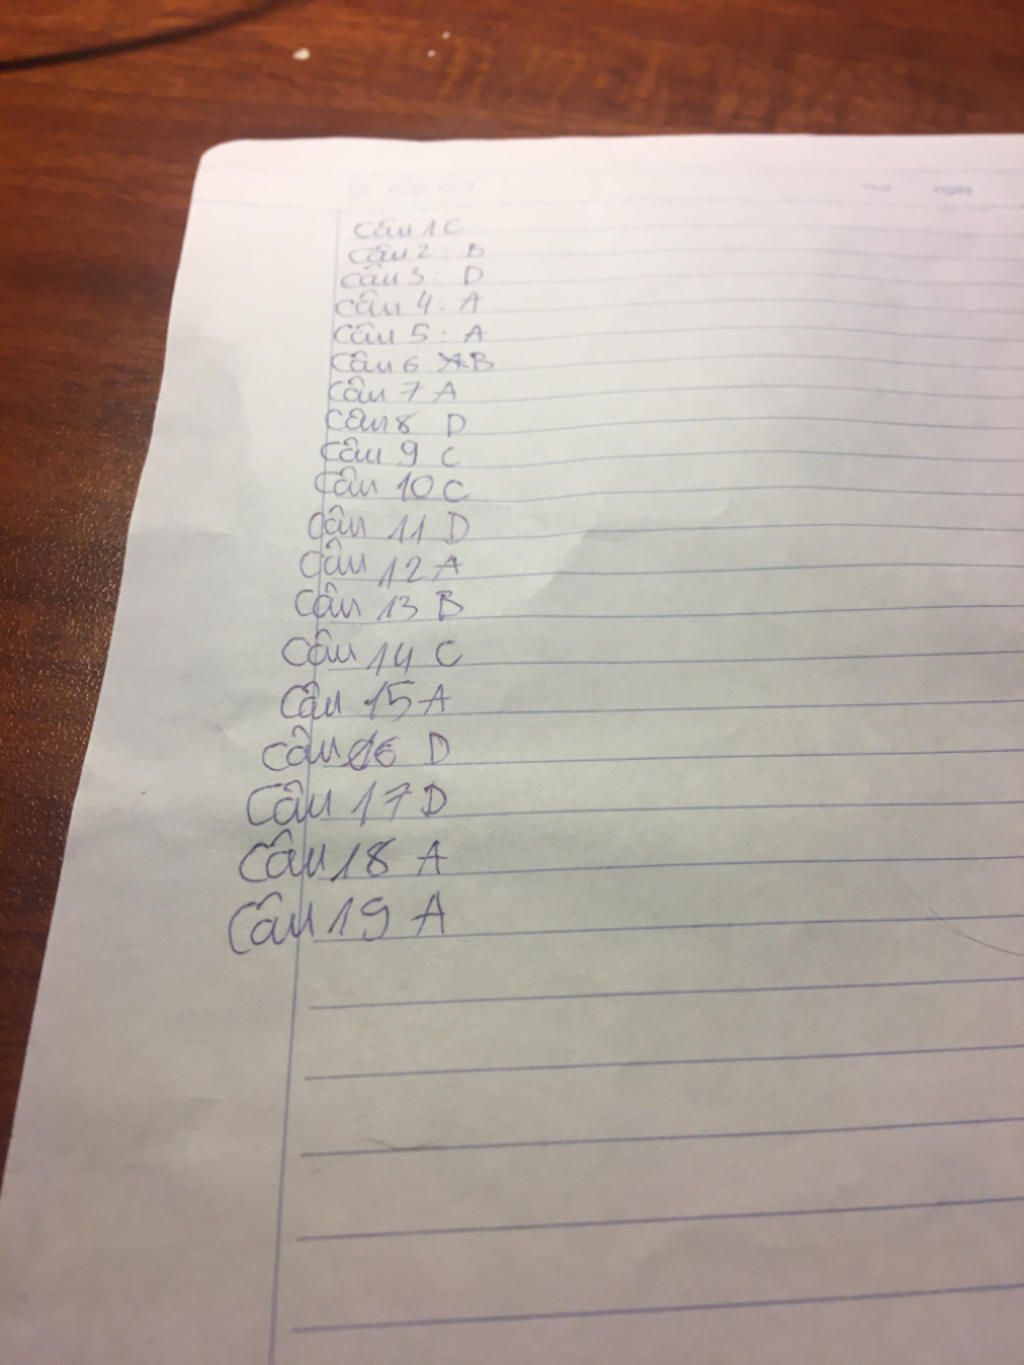 Câu 1 C
Câu 2: B
Câu 3: D
Câu 4. A
Câu 5: A
Câu 6 B
Câu 7 A
Câu 8 D
Câu 9 C
Câu 10 C
Câu 11 D
Câu 12 A
Câu 13 B
Câu 14 C
Câu 15 A
Câu 16 D
Câu 17 D
Câu 18 A
Câu 19 A